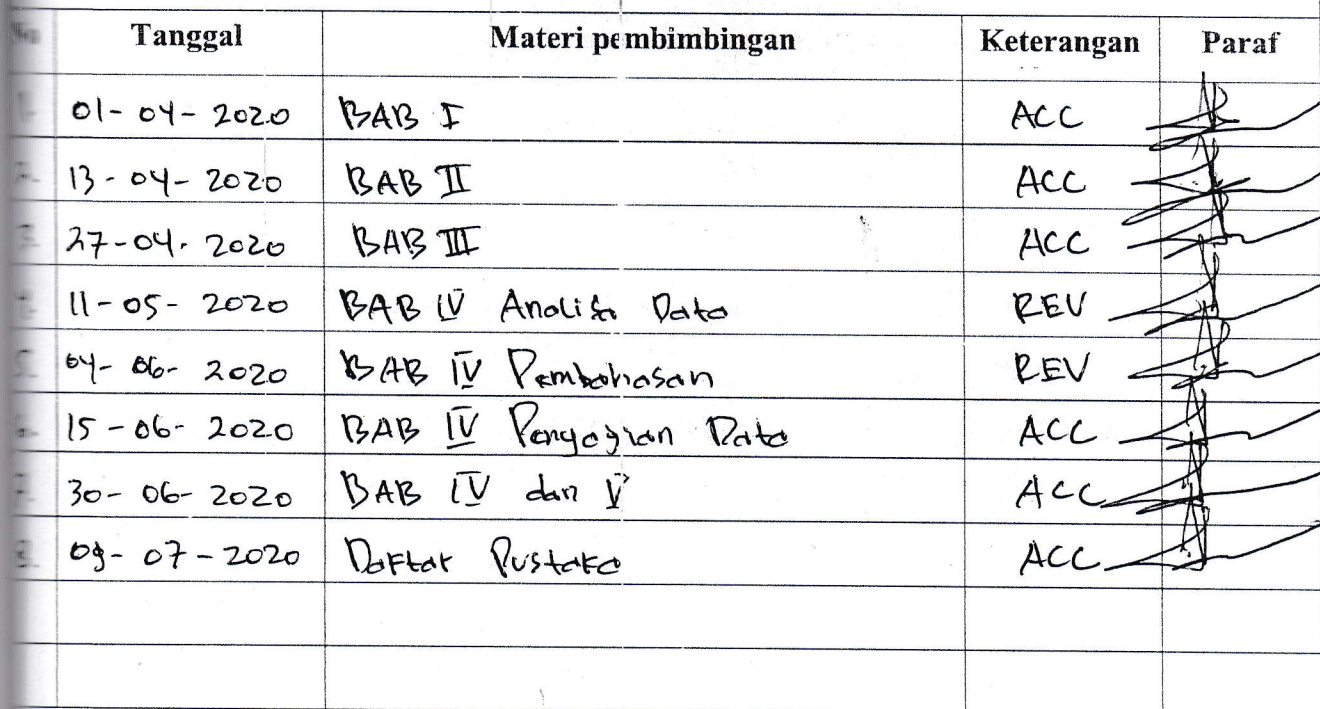 No Tanggal Materi pembimbingan Keterangan Paraf
1. 01-04-2020 BAB I ACC
2. 13-04-2020 BAB II ACC
3. 27-04-2020 BAB III ACC
11-05-2020 BAB IV Analisa Data REV
5. 04-06-2020 BAB IV Pembahasan REV
15-06-2020 BAB IV Penyajian Data ACC
7. 30-06-2020 BAB IV dan V ACC
8. 09-07-2020 Daftar Pustaka ACC